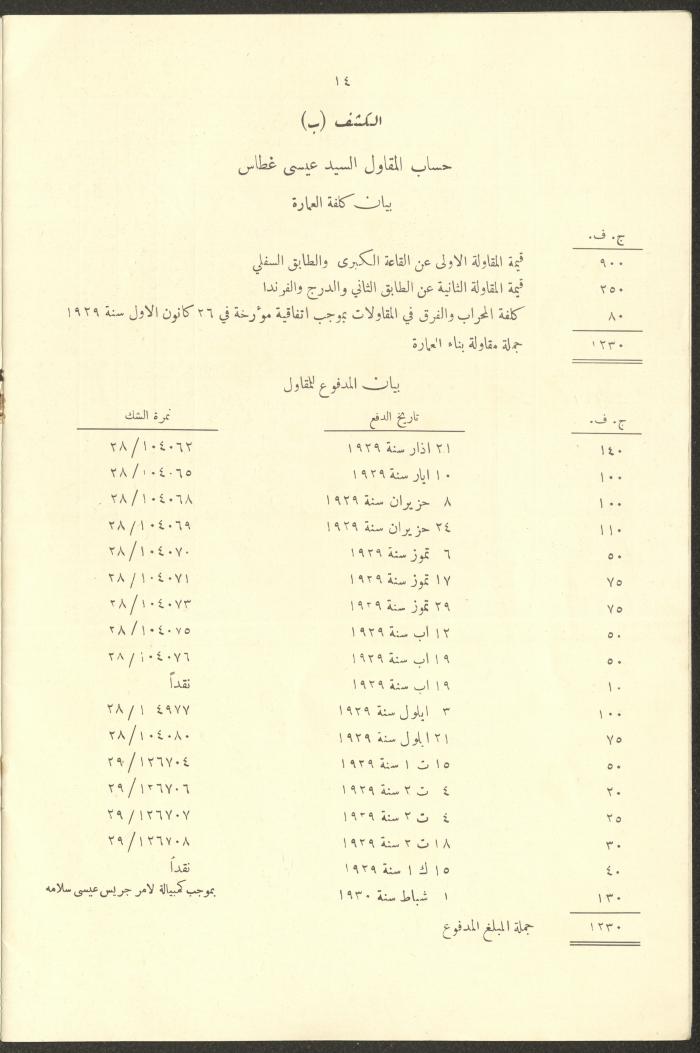 ١٤
الكشف (ب)
حساب المقاول السيد عيسى غطاس
بيان كلفة العمارة
ج. ف.
٩٠٠ قيمة المقاولة الاولى عن القاعة الكبرى والطابق السفلي
٢٥٠ قيمة المقاولة الثانية عن الطابق الثاني والدرج والفرندا
٨٠ كلفة المحراب والفرق في المقاولات بموجب اتفاقية مؤرخة في ٢٦ كانون الاول سنة ١٩٢٩
١٢٣٠ جملة مقاولة بناء العمارة
بيان المدفوع للمقاول
ج. ف. تاريخ الدفع نمرة الشك
١٤٠ ٢١ اذار سنة ١٩٢٩ ٢٨/١٠٤٠٦٢
١٠٠ ١٠ ايار سنة ١٩٢٩ ٢٨/١٠٤٠٦٥
١٠٠ ٨ حزيران سنة ١٩٢٩ ٢٨/١٠٤٠٦٨
١١٠ ٢٤ حزيران سنة ١٩٢٩ ٢٨/١٠٤٠٦٩
٥٠ ٦ تموز سنة ١٩٢٩ ٢٨/١٠٤٠٧٠
٧٥ ١٧ تموز سنة ١٩٢٩ ٢٨/١٠٤٠٧١
٧٥ ٢٩ تموز سنة ١٩٢٩ ٢٨/١٠٤٠٧٣
٥٠ ١٢ اب سنة ١٩٢٩ ٢٨/١٠٤٠٧٥
٥٠ ١٩ اب سنة ١٩٢٩ ٢٨/١٠٤٠٧٦
١٠ ١٩ اب سنة ١٩٢٩ نقداً
١٠٠ ٣ ايلول سنة ١٩٢٩ ٢٨/١ ٤٩٧٧
٧٥ ٢١ ايلول سنة ١٩٢٩ ٢٨/١٠٤٠٨٠
٥٠ ١٥ ت ١ سنة ١٩٢٩ ٢٩/١٢٦٧٠٤
٢٠ ٤ ت ٢ سنة ١٩٢٩ ٢٩/١٢٦٧٠٦
٢٥ ٤ ت ٢ سنة ١٩٢٩ ٢٩/١٢٦٧٠٧
٣٠ ١٨ ت ٢ سنة ١٩٢٩ ٢٩/١٢٦٧٠٨
٤٠ ١٥ ك ١ سنة ١٩٢٩ نقداً
١٣٠ ١ شباط سنة ١٩٣٠ بموجب كمبيالة لامر جريس عيسى سلامه
١٢٣٠ جملة المبلغ المدفوع